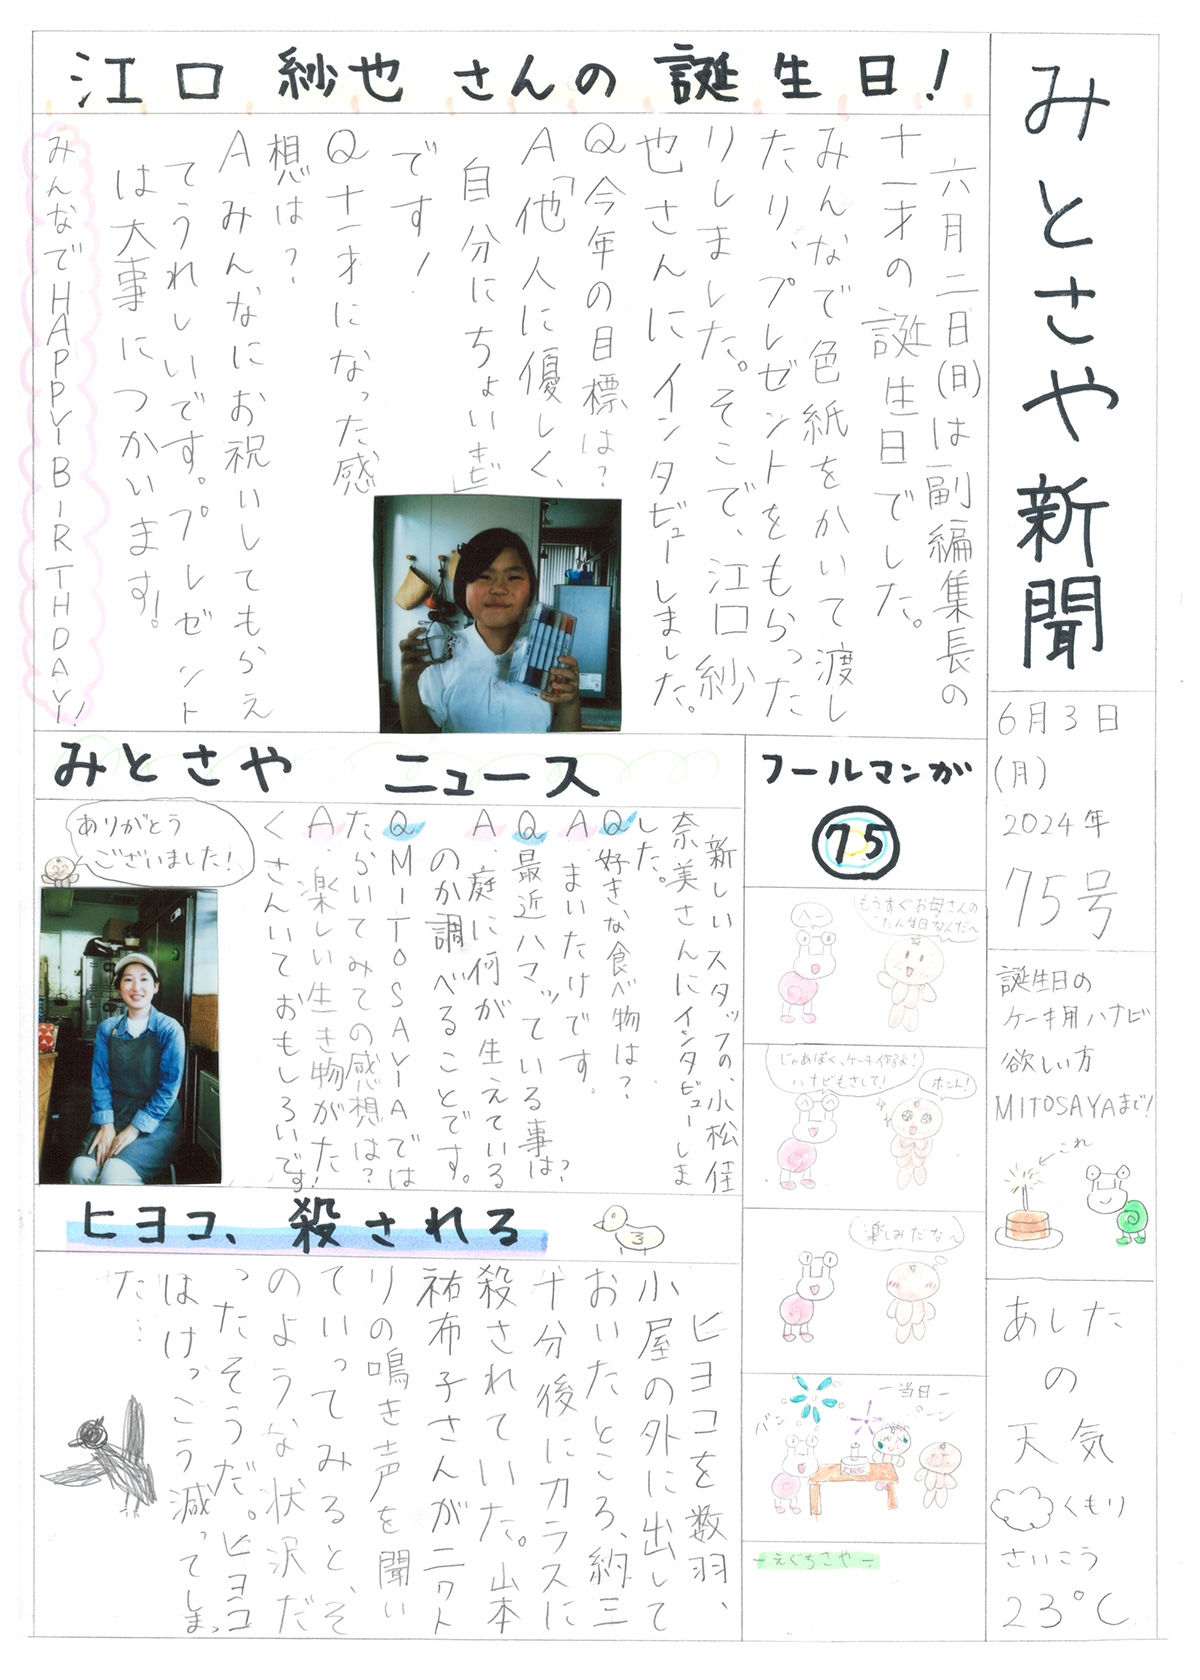 みとさや新聞
6月3日
(月)
2024年
75号
誕生日の
ケーキ用ハナビ
欲しい方
MITOSAYAまで!
これ
あしたの天気
くもり
さいこう
23℃
江口紗也さんの誕生日!
六月二日(日)は副編集長の
十一才の誕生日でした。
みんなで色紙をかいて渡し
たり、プレゼントをもらった
りしました。そこで、江口紗
也さんにインタビューしました。
Q今年の目標は?
A「他人に優しく、
自分にちょいキビ」
です!
Q十一才になった感
想は?
Aみんなにお祝いしてもらえ
てうれしいです。プレゼント
は大事につかいます!
みんなでHAPPYBIRTHDAY!
フールマンガ
75
もうすぐお母さんの
たん生日なんだ〜
へー
じゃあぼく、ケーキ作るよ!
ハナビもさして!
ホント!
楽しみだな〜
-当日-
パン
パーン
-えぐちさや-
みとさや ニュース
新しいスタッフの、小松佳
奈美さんにインタビューしま
した。
Q好きな食べ物は?
A.まいたけです。
Q最近ハマッている事は?
A.庭に何が生えている
のか調べることです。
QMITOSAYAでは
たらいてみての感想は?
A.楽しい生き物がた
くさんいておもしろいです!
ありがとう
ございました!
ヒヨコ、殺される
ヒヨコを数羽、
小屋の外に出して
おいたところ、約三
十分後にカラスに
殺されていた。山本
祐布子さんがニワト
リの鳴き声を聞い
ていってみると、そ
のような状況だ
ったそうだ。ヒヨコ
はけっこう減ってしまっ
た…